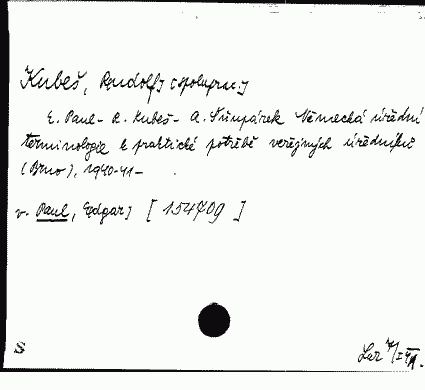 Kubeš, Rudolf, [spoluprac.]
E. Paul - R. Kubeš - A. Šimpárek Německá úřední
terminologie k praktické potřebě veřejných úředníků
(Brno), 1940-41 -
v. Paul, Edgar, [154709]
S
Lar 7/I 41.